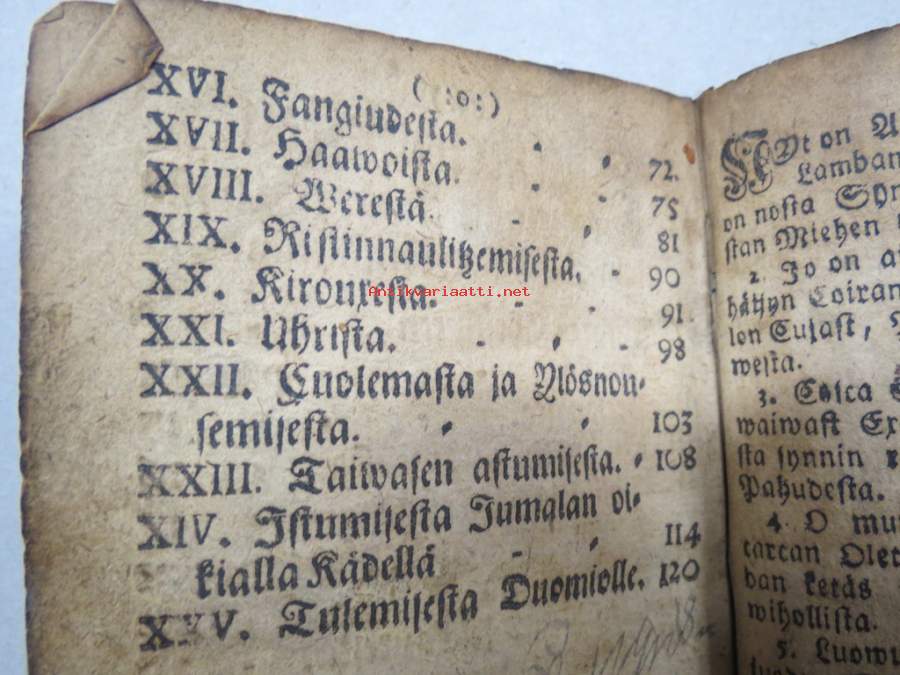 ( :o: )
XVI. Fangiudesta. 72.
XVII. Haawoista. 75
XVIII. Werestä. 81
XIX. Ristiinnaulitzemisesta. 90
XX. Kirouxesta. 91
XXI. Uhrista. 98
XXII. Cuolemasta ja Ylösnou-
semisesta. 103
XXIII. Taiwasen astumisesta. 108
XIV. Istumisesta Jumalan oi-
kialla Kädellä 114
XXV. Tulemisesta Duomiolle. 120
Antikvariaatti.net
NYt on A
Lamban
on nosta Syn
stan Miehen
2. Jo on
hätyn Coiran
lon Culast,
westa.
3. Caica
waiwast Ex
sta synnin
Pahudesta.
4. O mu
carcan Olet
dan keräs
wihollista.
5. Luowu